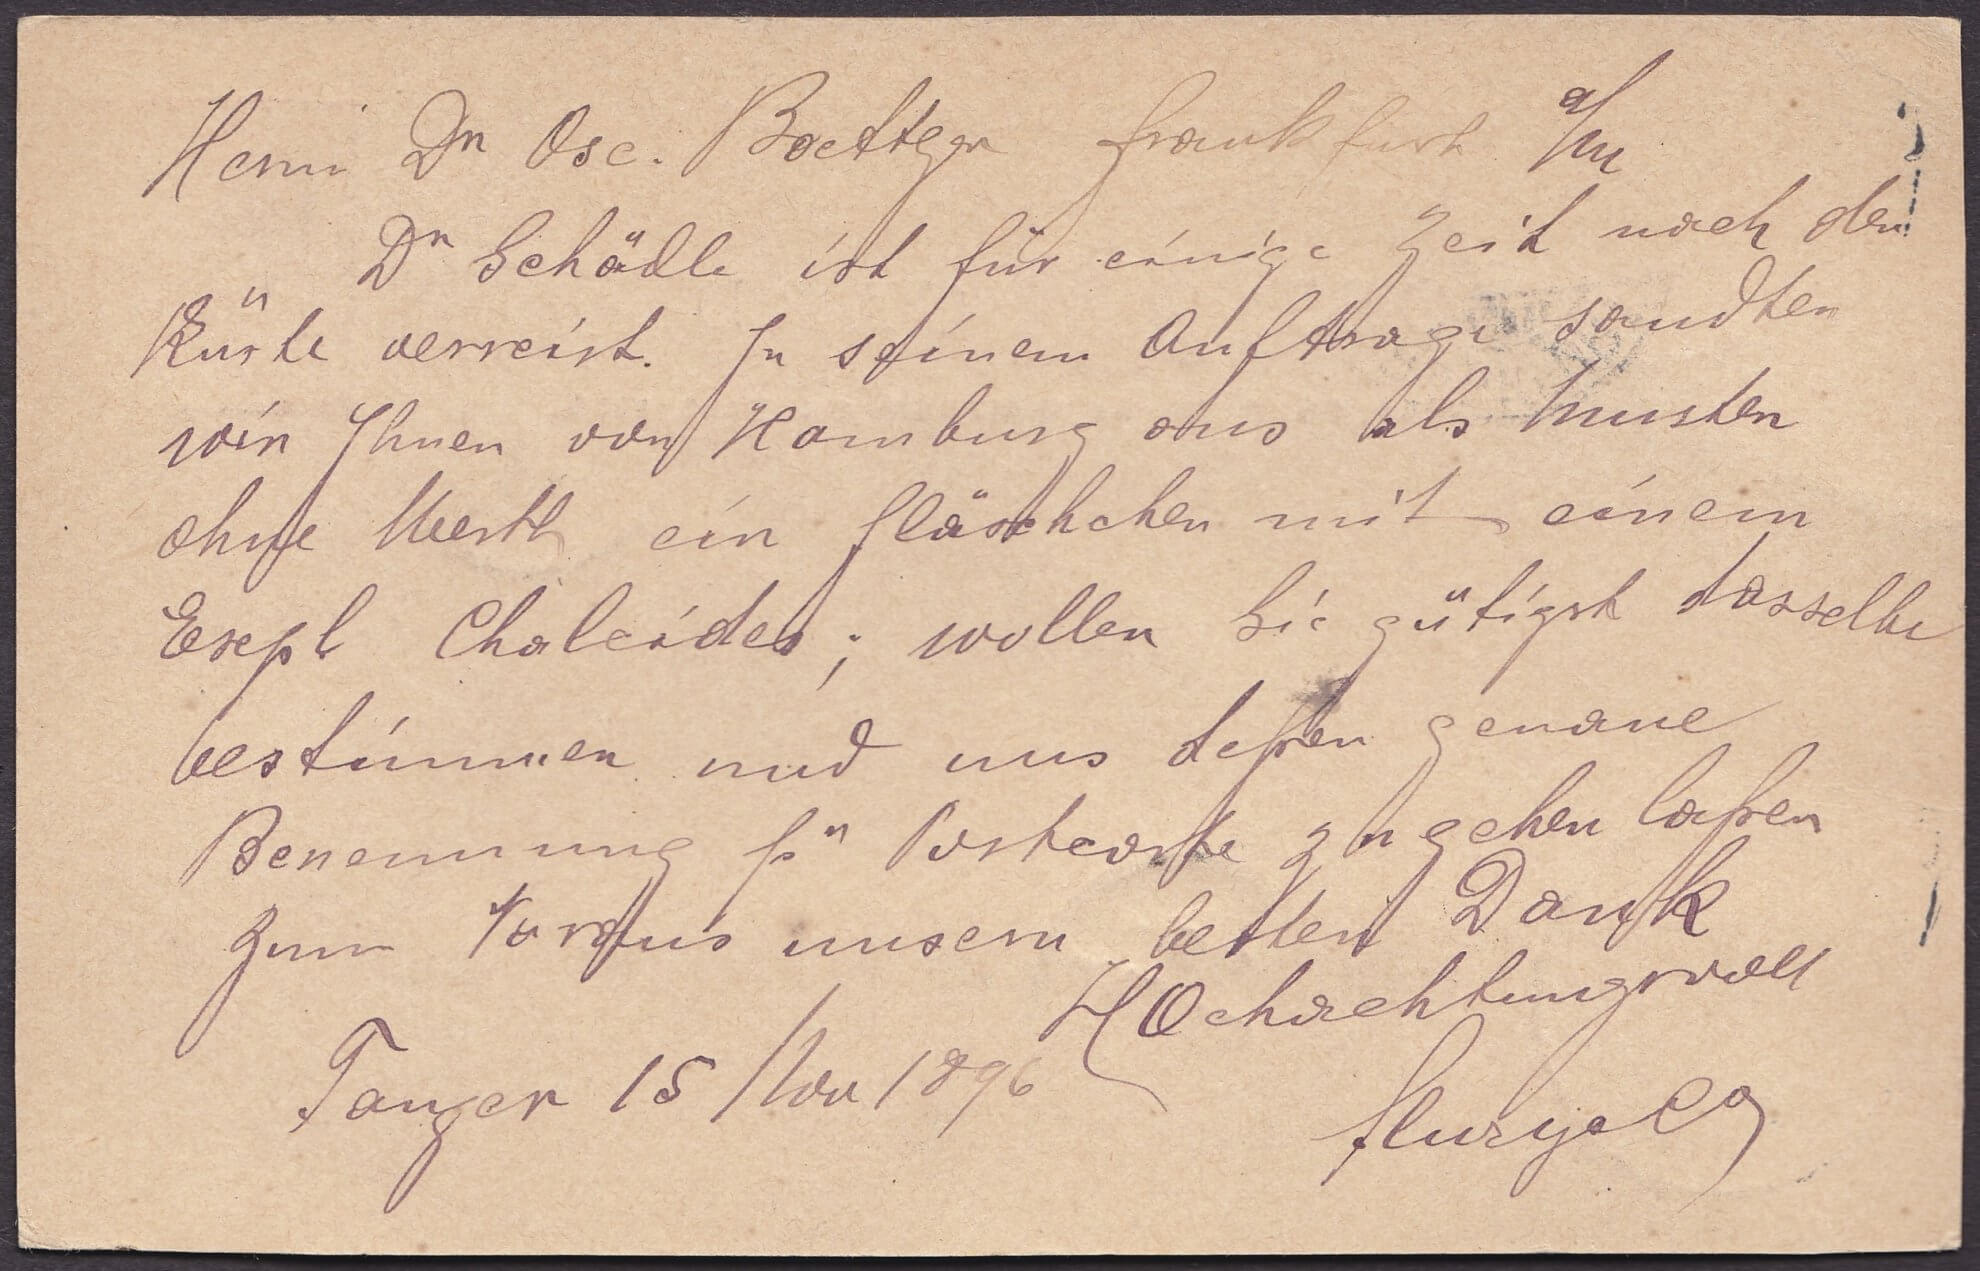 Herrn Dr Osc. Boettger Frankfurt a/M
Dr Schädle ist für einige Zeit nach der
Küste verreist. In seinem Auftrage sandten
wir Ihnen von Hamburg aus als Muster
ohne Werth ein Fläschchen mit einem
Exepl Chalcides; wollen Sie gütigst dasselbe
bestimmen und uns deßen genaue
Benennung pr Postcarte zugehen laßen
Zum Voraus unsern besten Dank
Hochachtungsvoll
Tanger 15 Nov 1896